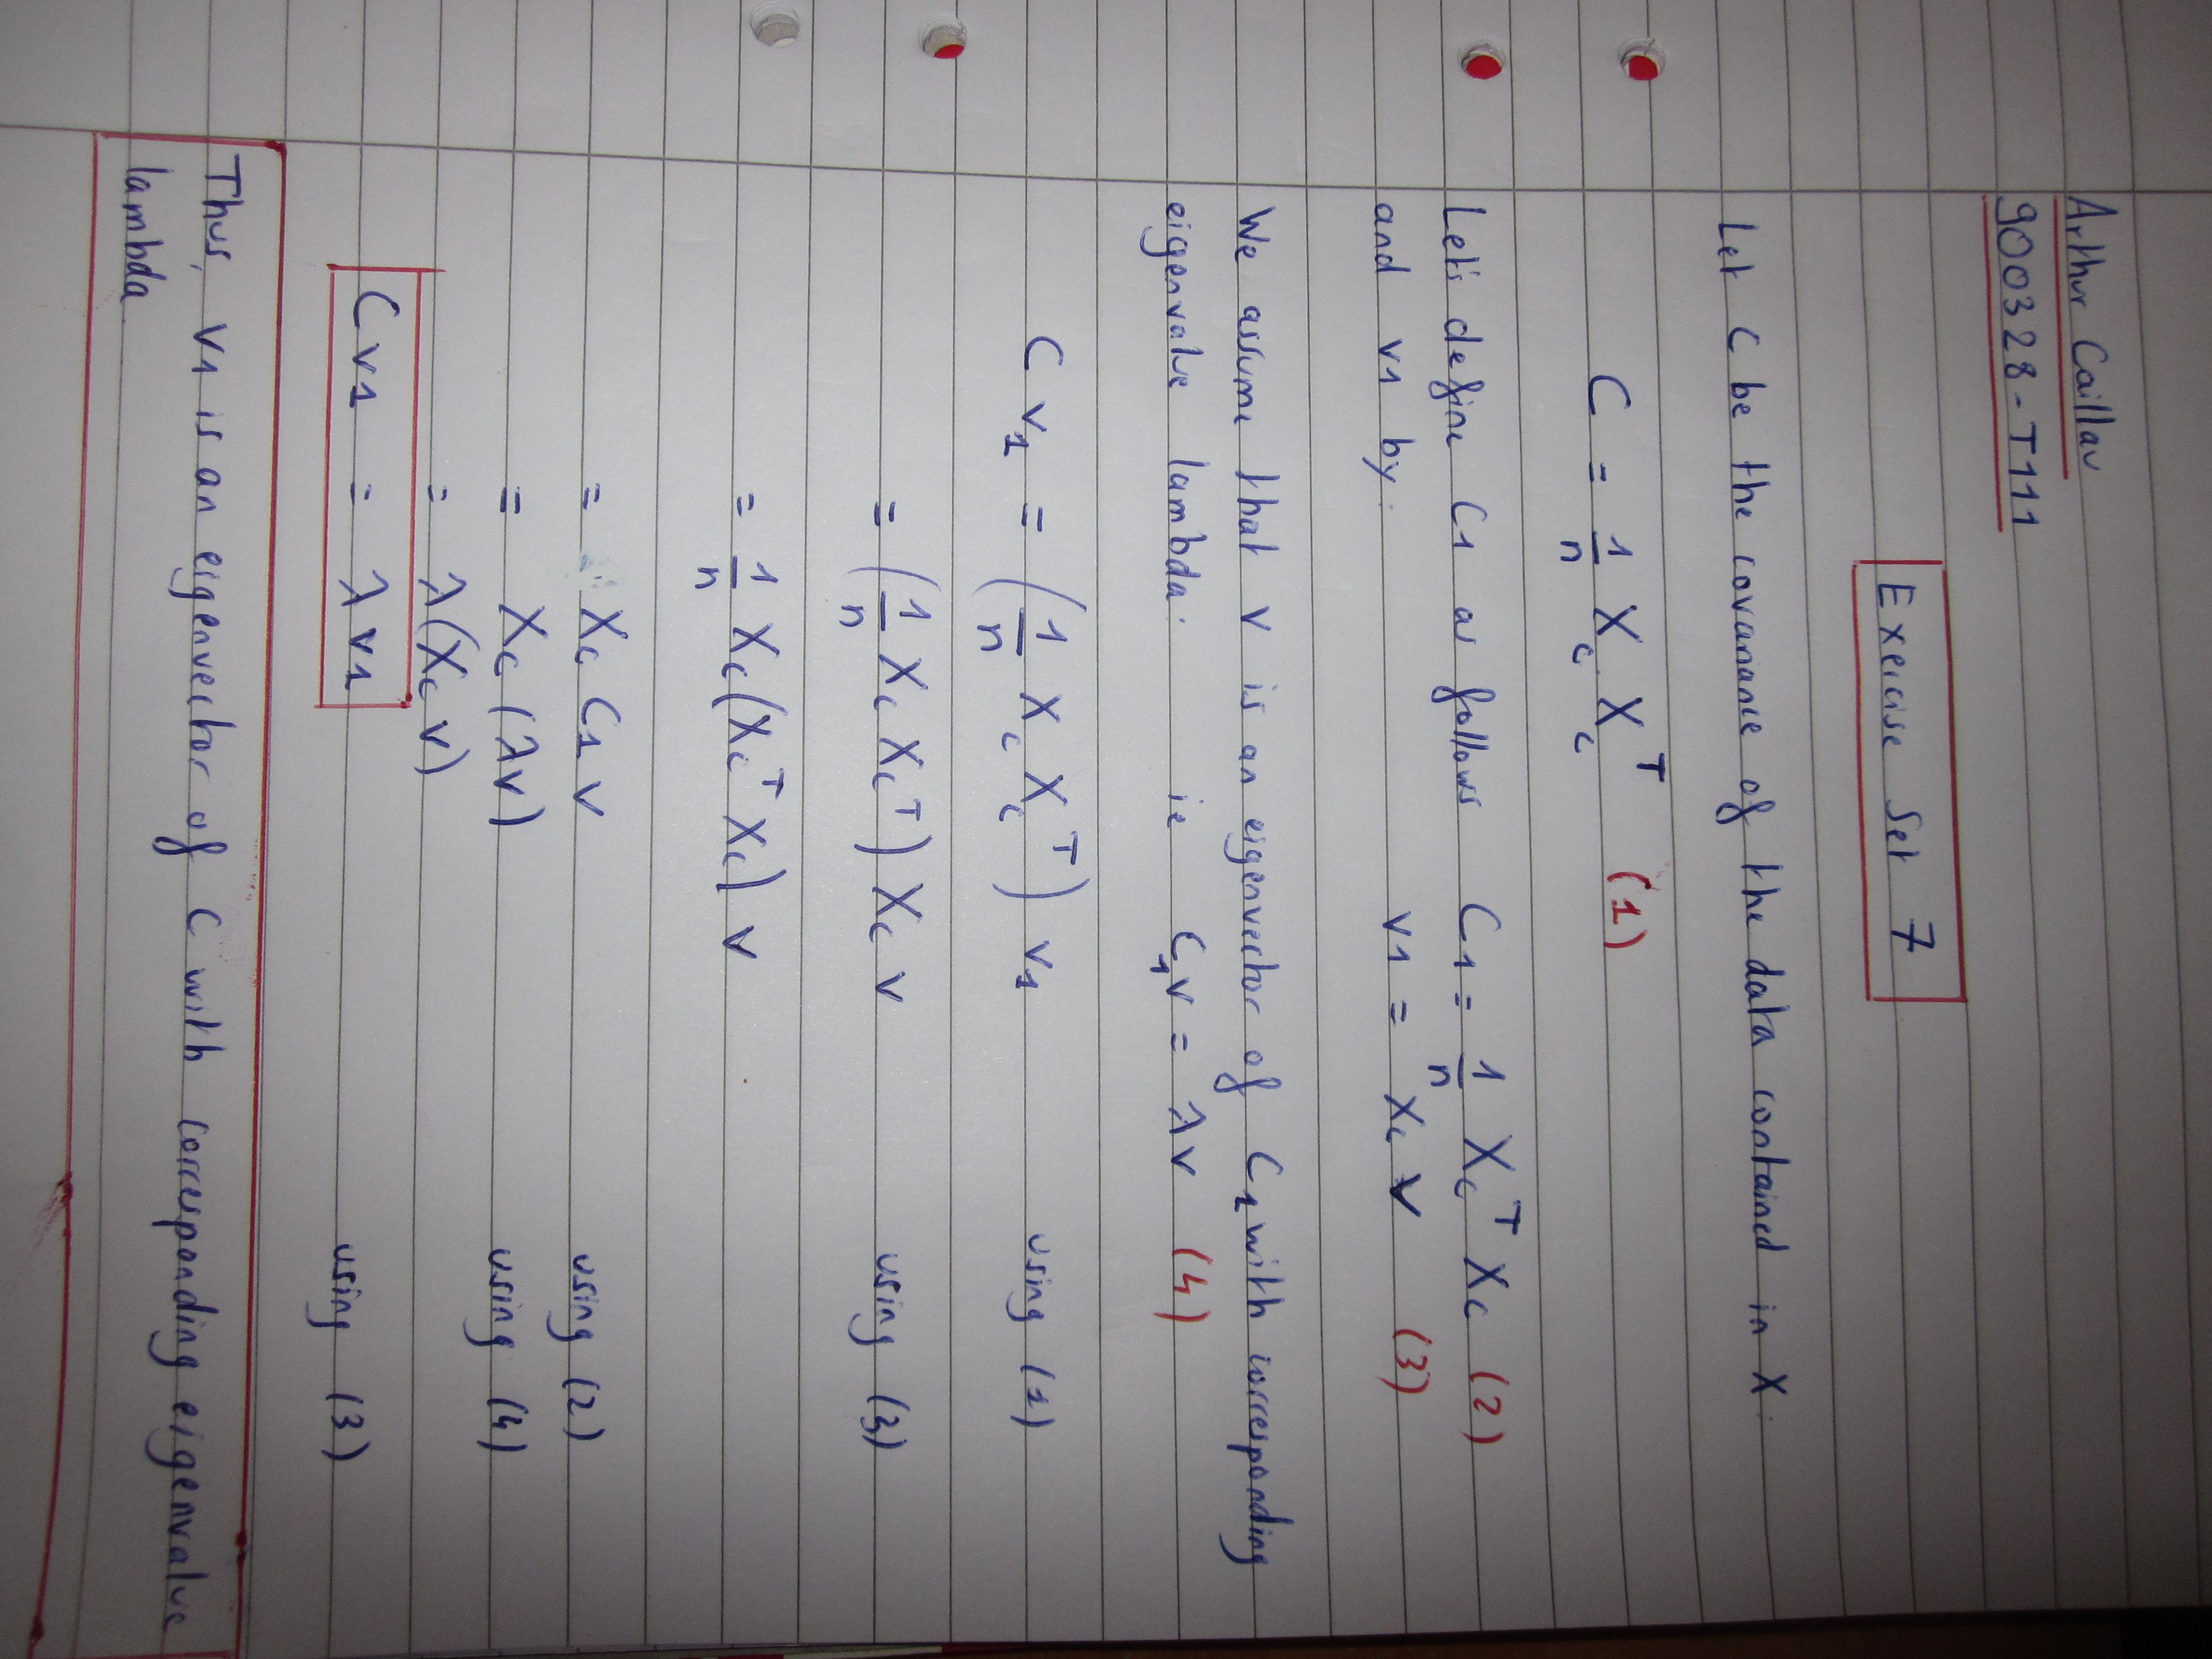 Arthur Caillau
900328-T111
Exercise Set 7
Let C be the covariance of the data contained in X.
C = 1/n X_c X_c^T (1)
Let's define C1 as follows C_1 = 1/n X_c^T X_c (2)
and v1 by: v1 = X_c v (3)
We assume that v is an eigenvector of C_1 with corresponding
eigenvalue lambda. ie C_1 v = λv (4)
C v_1 = (1/n X_c X_c^T) v_1 using (1)
= (1/n X_c X_c^T) X_c v using (3)
= 1/n X_c (X_c^T X_c) v
= X_c C_1 v using (2)
= X_c (λv) using (4)
= λ(X_c v)
C v1 = λ v1 using (3)
Thus, v1 is an eigenvector of C with corresponding eigenvalue
lambda.